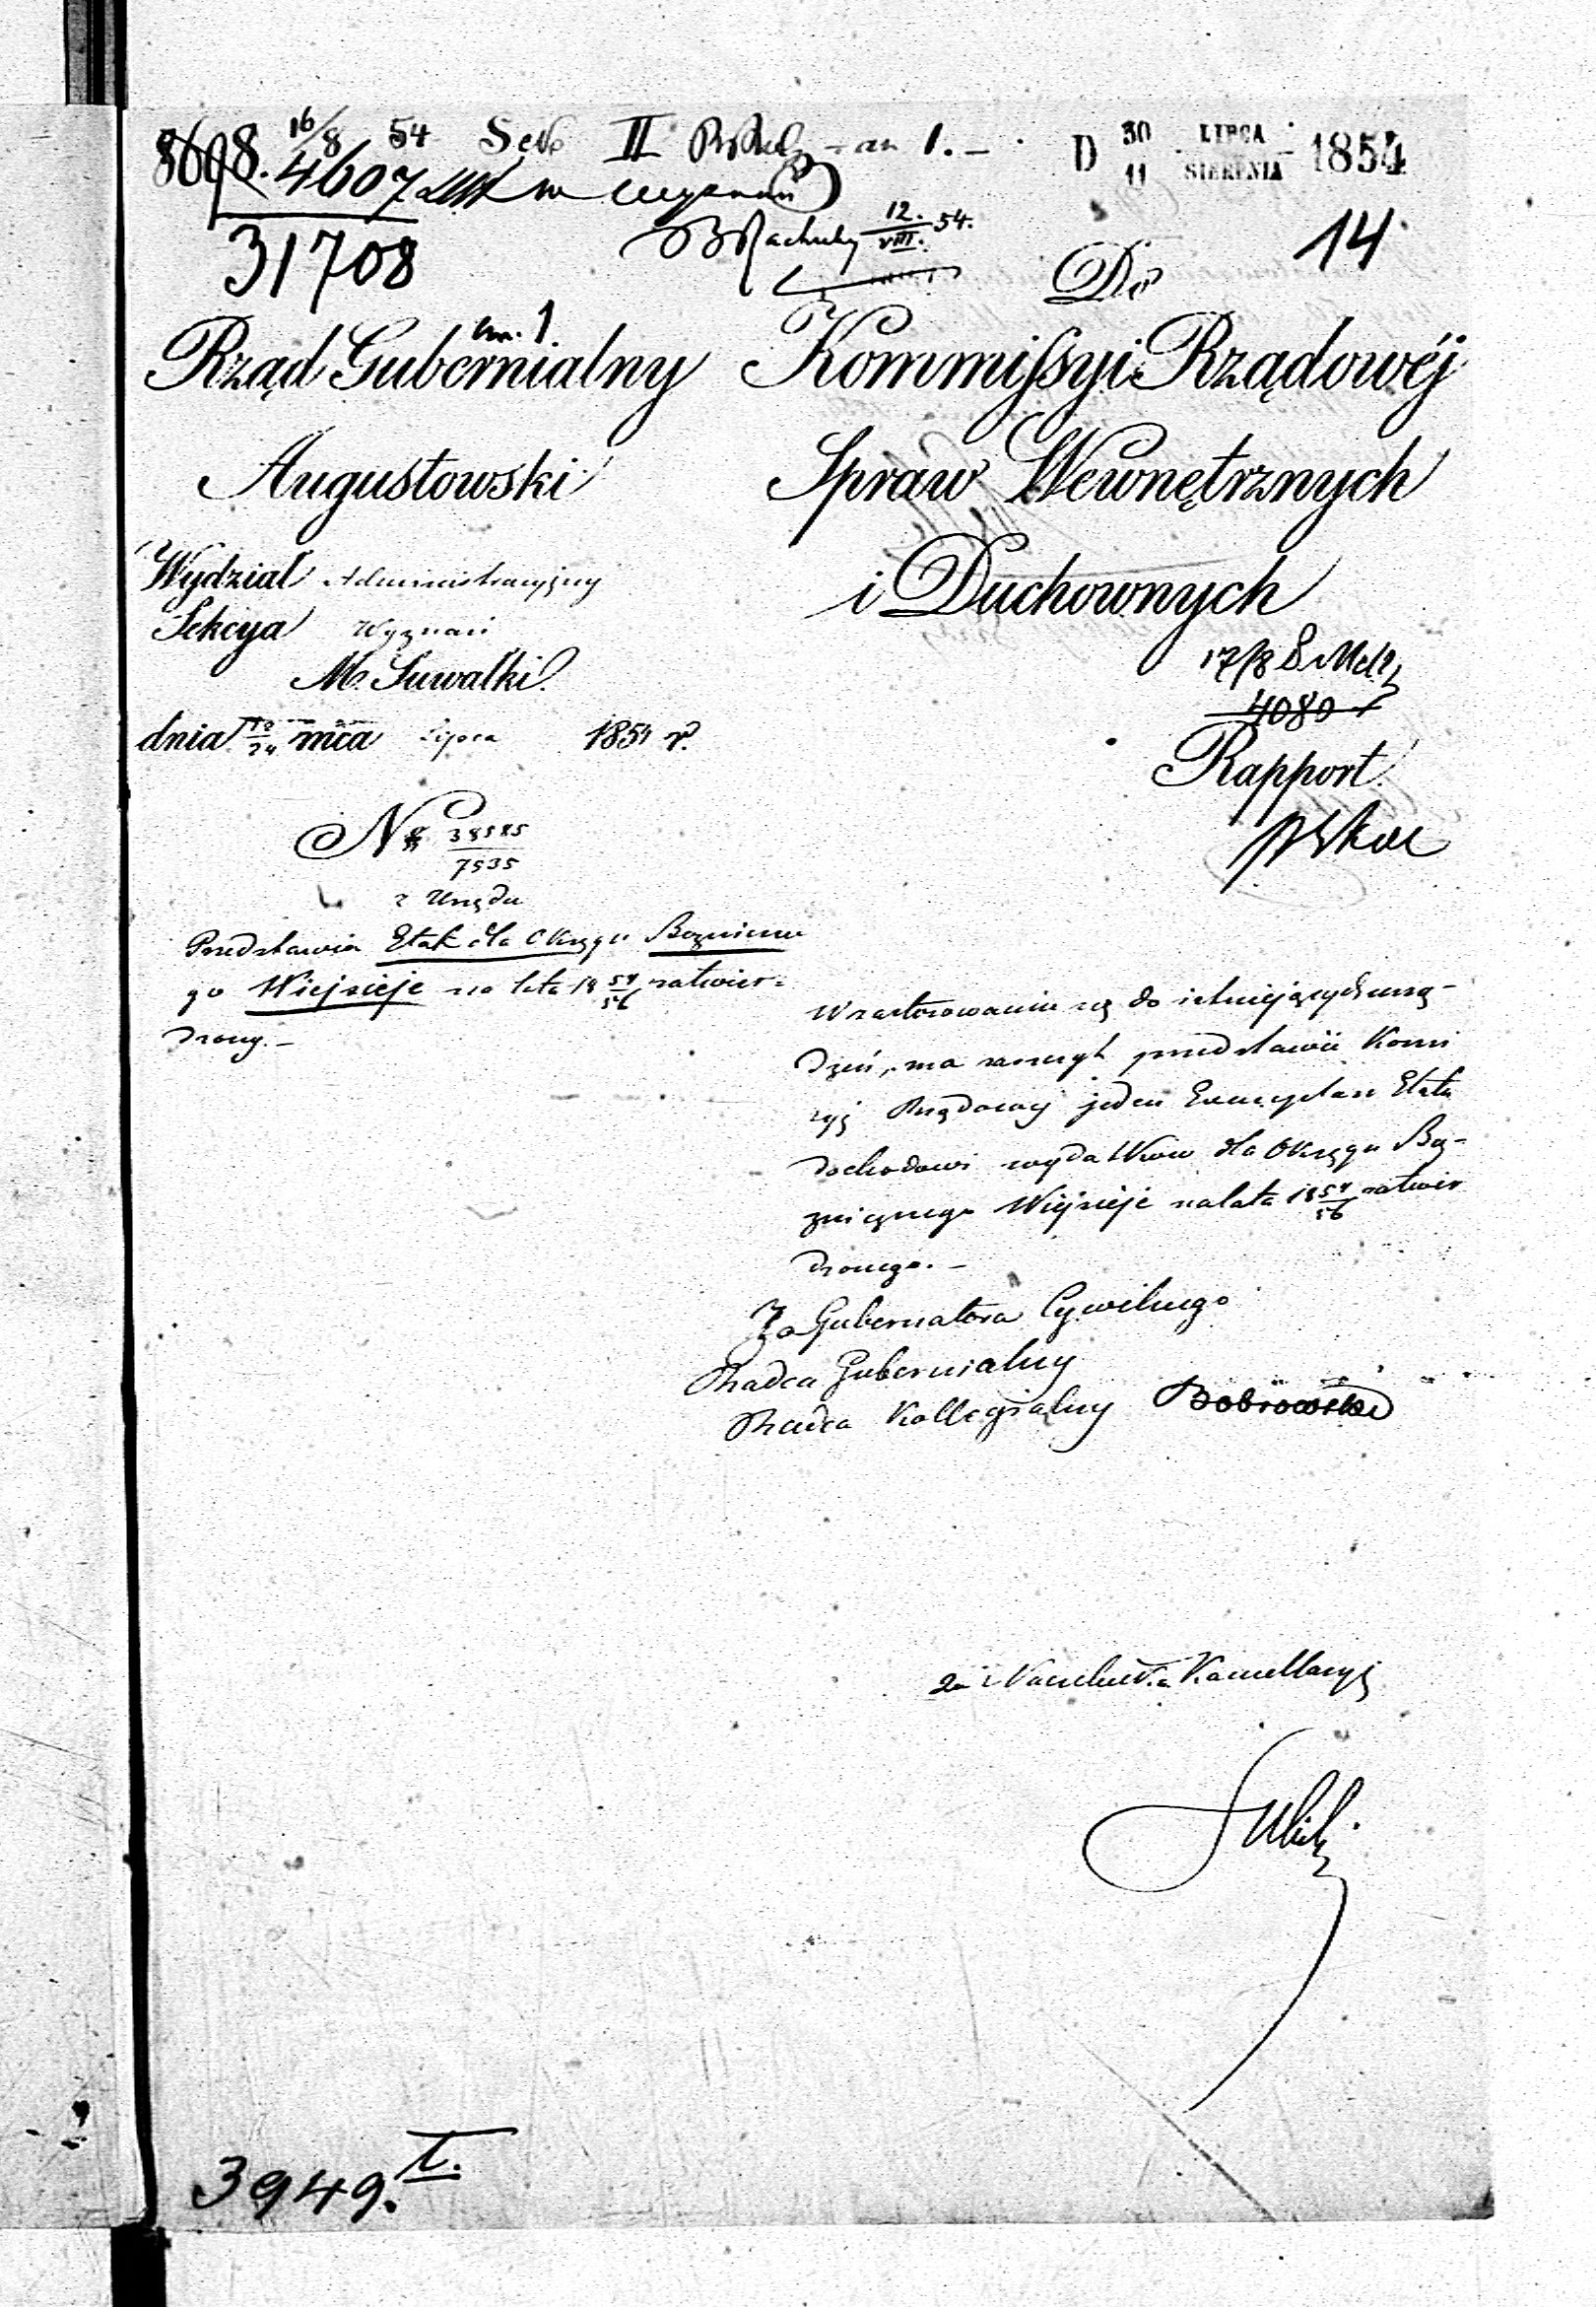 8698. 16/8 54 Sek II
D 30/11 LIPCA/SIERPNIA 1854
4607
31708
12./VIII. 54.
14
Do
Rząd Gubernialny
Kommissyi Rządowéj
Augustowski
Spraw Wewnętrznych
i Duchownych
Wydział Administracyjny
Sekcya Wyznań
M. Suwałki.
dnia 12/24 mca Lipca 1854 r.
17/8
4080
Rapport.
N 38585/7535
z Urzędu
Przedstawia Etat dla Okręgu Bożniczne
go Wiejsieje na lata 1854/56 zatwier=
dzony.—
W zastosowaniu się do istniejących urzą-
dzeń, ma zaszczyt przedstawić Kommi
syj Rządowej jeden Exemplarz Etatu
dochodów i wydatków dla Okręgu Bo-
żnicznego Wiejsieje na lata 1854/56 zatwier
dzonego.—
Za Gubernatora Cywilnego
Radca Gubernialny
Radca Kollegialny Bobrowski
Za Naczelnika Kancellaryj
3949. I.